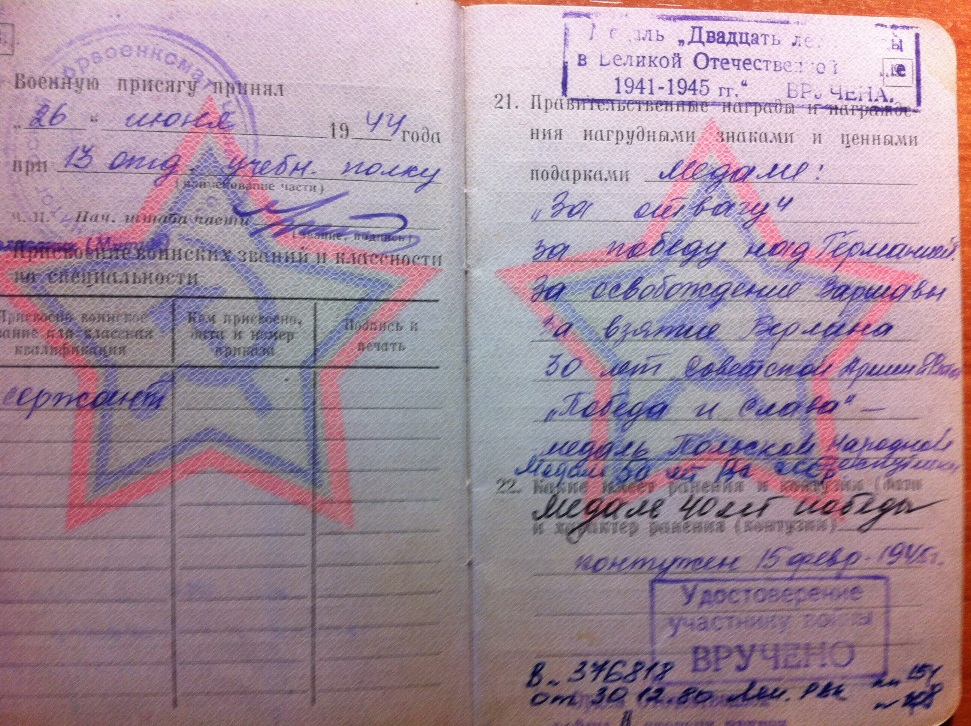 Военную присягу принял
„26“ июня 1944 года
при 13 отд. учебн. полку
(наименование части)
Нач. штаба части
Присвоение воинских званий и классности
по специальности
Присвоено воинское
звание или классная
квалификация
Кем присвоено,
дата и номер
приказа
Подпись и
печать
сержант
„Двадцать
в Великой Отечественной
1941-1945 гг.“ ВРУЧЕНА.
21. Правительственные награды и награжде-
ния нагрудными знаками и ценными
подарками медаль:
„За отвагу“
за победу над Германией
За освобождение Варшавы
За взятие Берлина
30 лет Советской Армии
„Победа и Слава“ –
медаль Польской Народной
Медаль 50 лет
22. Какие имеет ранения и контузии (дата
Медаль 40 лет победы
и характер ранения (контузии)
контужен 15 февр. 1945г.
Удостоверение
участнику войны
ВРУЧЕНО
В № 376818
от 30.12.80